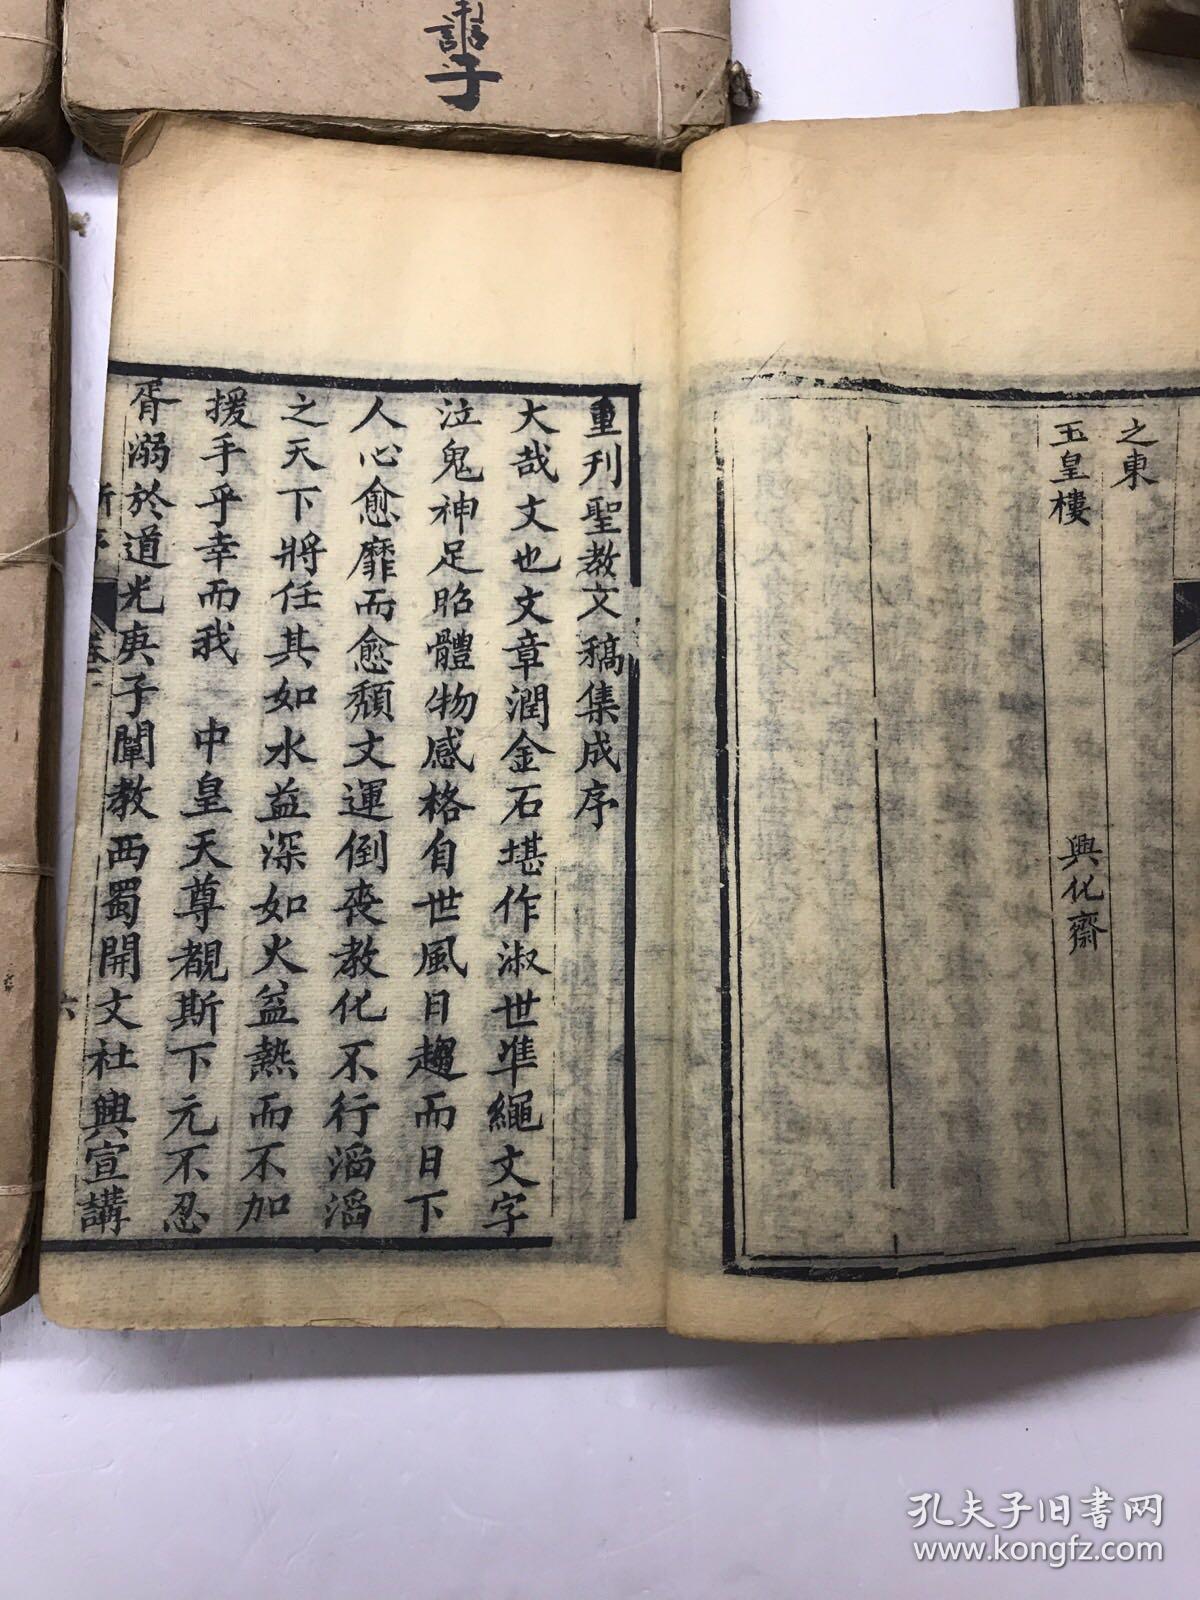 子
之東
玉皇樓 興化齋
重刊聖教文稿集成序
大哉文也文章潤金石堪作淑世準繩文字
泣鬼神足昭體物感格自世風日趨而日下
人心愈靡而愈頹文運倒喪教化不行滔滔
之天下將任其如水益深如火益熱而不加
援手乎幸而我 中皇天尊覩斯下元不忍
胥溺於道光庚子闡教西蜀開文社興宣講
卷
六
孔夫子旧书网
www.kongfz.com